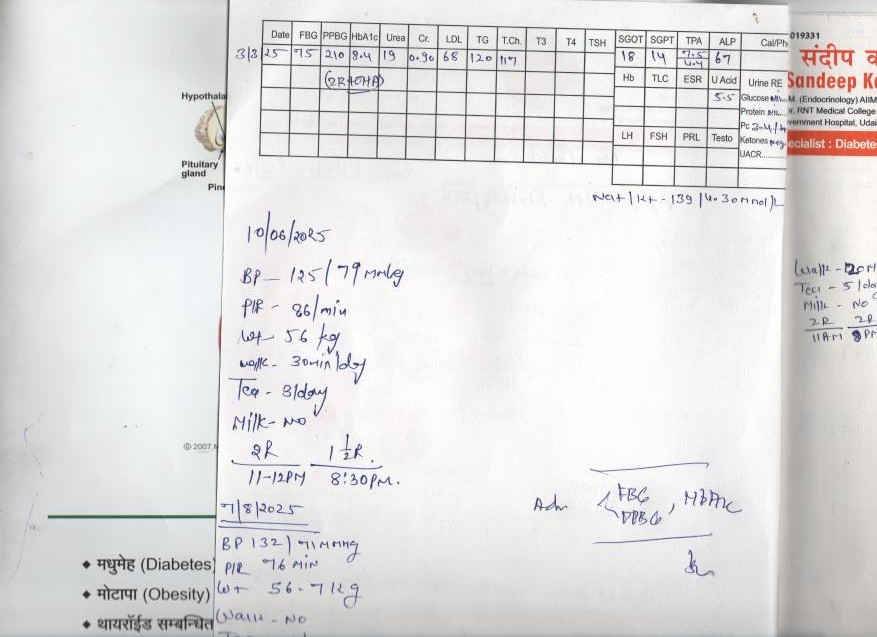 Date FBG PPBG HbA1c Urea Cr. LDL TG T.Ch. T3 T4 TSH SGOT SGPT TPA ALP Cal/Ph
3/3/25 95 210 8.4 19 0.90 68 120 117 18 14 7.5/4.4 67
(2R+OHA)
Hb TLC ESR U Acid Urine RE
5.5 Glucose
Protein
Pc 3-4/
LH FSH PRL Testo Ketones neg
UACR
Na+/K+ - 139/4.30 mmol/L
10/06/2025
BP - 125/79 mmhg
P/R - 86/min
Wt - 56 kg
walk - 30min/day
Tea - 3/day
Milk - NO
2R 1 1/2 R.
11-12PM 8:30PM.
7/8/2025
BP 132/71 mmhg
P/R 76 MIN
Wt 56.7 kg
Walk - NO
Adv FBG
PPBG, HbA1c
Hypothala
Pituitary
gland
Pin
© 2007
मधुमेह (Diabetes)
मोटापा (Obesity)
थायरॉईड सम्बन्धित
019331
संदीप
Sandeep K
M. (Endocrinology) AIIM
r, RNT Medical College
vernment Hospital, Udai
ecialist : Diabete
Walk - 20 M
Tea - 5/day
Milk - NO
2R 2R
11AM 8PM